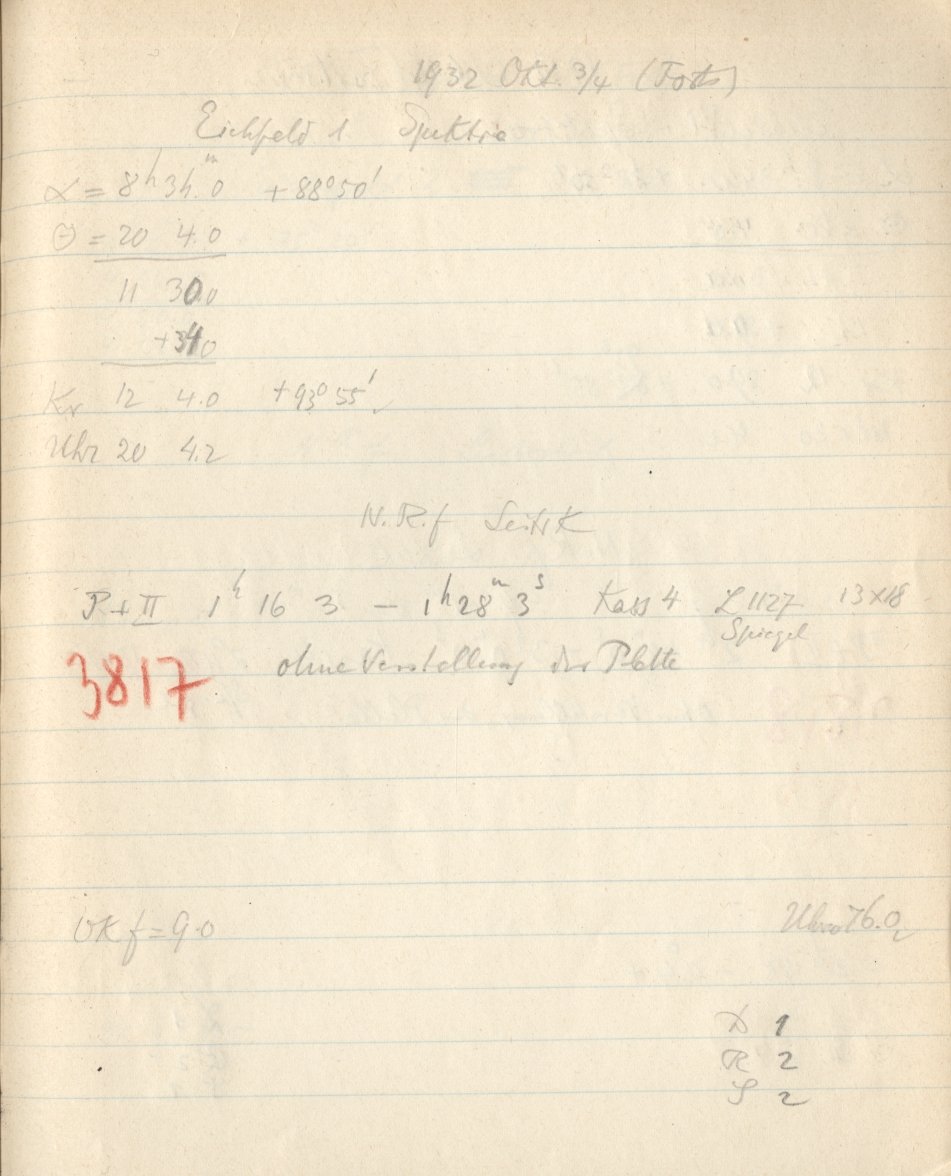 1932 Okt. 3/4 (Forts)
Eichfeld 1. Spektra
α = 8ʰ 34.ᵐ0 +88°50'
Θ = 20 4.0
11 30.0
+34.0
Kr 12 4.0 +93°55'
Uhr 20 4.2
N.R.f
P+II 1ʰ 16 3 – 1ʰ 28ᵐ 3ˢ Kass 4 Z 1127 13x18
Spiegel
3817 ohne Verstellung der Platte
OK f = 9.0 76.0
D 1
R 2
S 2